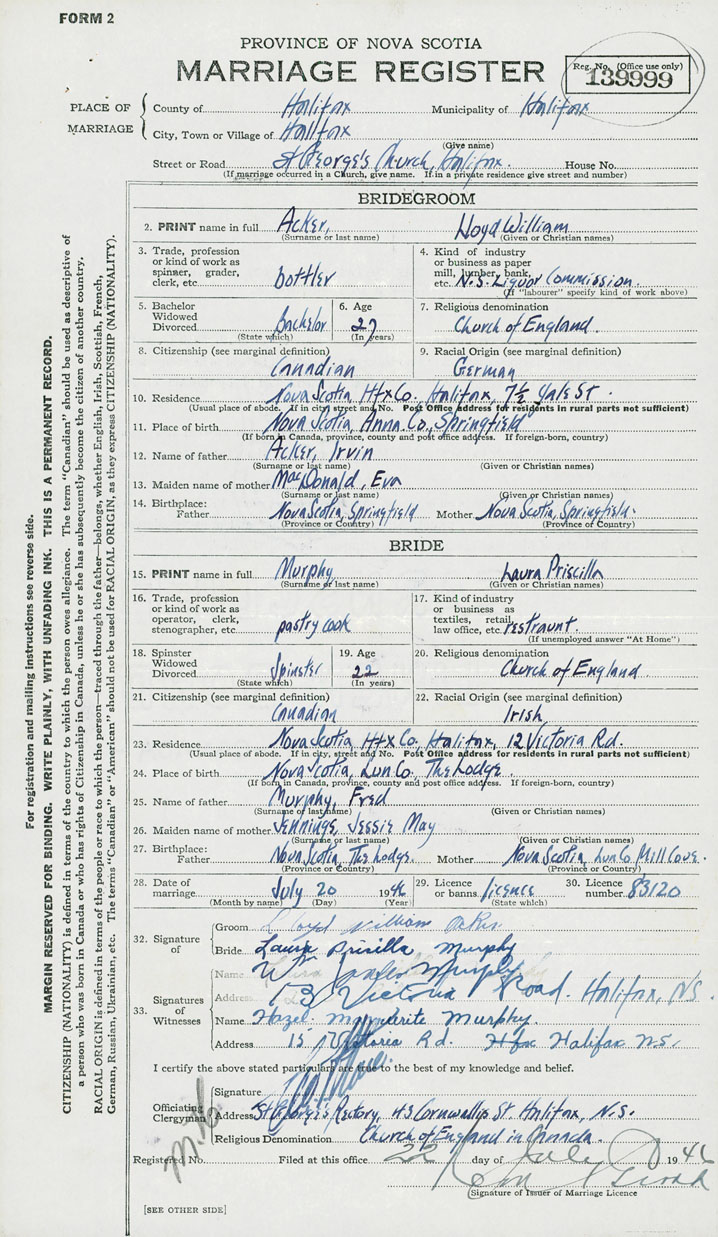 FORM 2
PROVINCE OF NOVA SCOTIA
MARRIAGE REGISTER
Reg. No. (Office use only)
139999
PLACE OF MARRIAGE
County of Halifax Municipality of Halifax
City, Town or Village of Halifax
(Give name)
Street or Road St George's Church, Halifax. House No.
(If marriage occurred in a Church, give name. If in a private residence give street and number)
BRIDEGROOM
2. PRINT name in full Acker, Lloyd William
(Surname or last name) (Given or Christian names)
3. Trade, profession or kind of work as spinner, grader, clerk, etc. bottler
4. Kind of industry or business as paper mill, lumber, bank, etc. N.S. Liquor Commission.
(If "labourer" specify kind of work above)
5. Bachelor Widowed Divorced Bachelor
(State which)
6. Age 27
(In years)
7. Religious denomination
Church of England.
8. Citizenship (see marginal definition)
Canadian
9. Racial Origin (see marginal definition)
German
10. Residence Nova Scotia, Hfx Co. Halifax, 7½ Yale St.
(Usual place of abode. If in city street and No. Post Office address for residents in rural parts not sufficient)
11. Place of birth Nova Scotia, Anna. Co, Springfield
(If born in Canada, province, county and post office address. If foreign-born, country)
12. Name of father Acker, Irvin
(Surname or last name) (Given or Christian names)
13. Maiden name of mother MacDonald, Eva
(Surname or last name) (Given or Christian names)
14. Birthplace: Father Nova Scotia, Springfield Mother Nova Scotia, Springfield.
(Province or Country) (Province or Country)
BRIDE
15. PRINT name in full Murphy Laura Priscilla
(Surname or last name) (Given or Christian names)
16. Trade, profession or kind of work as operator, clerk, stenographer, etc. pastry cook
17. Kind of industry or business as textiles, retail, law office, etc. restraunt.
(If unemployed answer "At Home")
18. Spinster Widowed Divorced Spinster
(State which)
19. Age 22
(In years)
20. Religious denomination
Church of England.
21. Citizenship (see marginal definition)
Canadian
22. Racial Origin (see marginal definition)
Irish
23. Residence Nova Scotia, Hfx Co, Halifax, 12 Victoria Rd.
(Usual place of abode. If in city, street and No. Post Office address for residents in rural parts not sufficient)
24. Place of birth Nova Scotia, Lun Co. The Lodge.
(If born in Canada, province, county and post office address. If foreign-born, country)
25. Name of father Murphy, Fred
(Surname or last name) (Given or Christian names)
26. Maiden name of mother Jennings, Jessie May
(Surname or last name) (Given or Christian names)
27. Birthplace: Father Nova Scotia, The Lodge. Mother Nova Scotia, Lun Co Mill Cove.
(Province or Country) (Province or Country)
28. Date of marriage July 20 1946
(Month by name) (Day) (Year)
29. Licence or banns licence
(State which)
30. Licence number 83120
32. Signature of
Groom Lloyd William
Bride Laura Prisilla Murphy
33. Signatures of Witnesses
Name Murphy
Address 13 Victoria Road. Halifax, N.S.
Name Hazel Murphy.
Address 15 Victoria Rd. Hfx Halifax N.S.
I certify the above stated particulars are true to the best of my knowledge and belief.
Officiating Clergyman
Signature
Address St George's Rectory, 43 Cornwallis St. Halifax, N.S.
Religious Denomination Church of England in Canada.
Registered No. Filed at this office 22 day of July 1946
(Signature of Issuer of Marriage Licence
[SEE OTHER SIDE]
For registration and mailing instructions see reverse side.
MARGIN RESERVED FOR BINDING. WRITE PLAINLY, WITH UNFADING INK. THIS IS A PERMANENT RECORD.
CITIZENSHIP (NATIONALITY) is defined in terms of the country to which the person owes allegiance. The term "Canadian" should be used as descriptive of
a person who was born in Canada or who has rights of Citizenship in Canada, unless he or she has subsequently become the citizen of another country.
RACIAL ORIGIN is defined in terms of the people or race to which the person—traced through the father—belongs, whether English, Irish, Scottish, French,
German, Russian, Ukrainian, etc. The terms "Canadian" or "American" should not be used for RACIAL ORIGIN, as they express CITIZENSHIP (NATIONALITY).